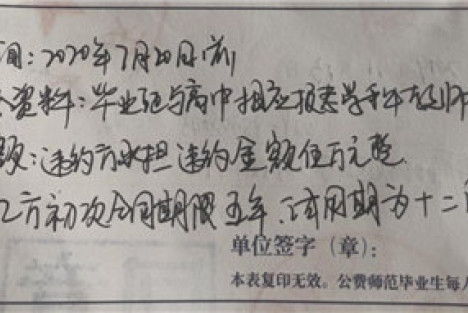 间：2020年7月20日前
资料：毕业证与高中相应报考学科教师
款：违约方承担违约金额伍万元整
乙方初次合同期限五年，试用期为十二
单位签字（章）：
本表复印无效。公费师范毕业生每人